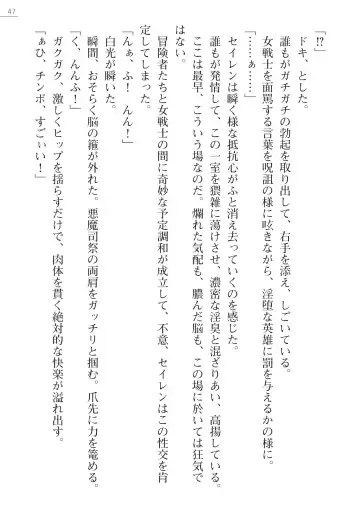 47
「!?」
ドキ、とした。
誰もがガチガチの勃起を取り出して、右手を添え、しごいている。
女戦士を面罵する言葉を呪詛の様に呟きながら、淫堕な英雄に罰を与えるかの様に。
「……ぁ……」
セイレンは瞬く様な抵抗心がふと消え去っていくのを感じた。
誰もが発情して、この一室を猥雑に蕩けさせ、濃密な淫臭と混ざりあい、高揚している。
ここは最早、こういう場なのだ。爛れた気配も、膿んだ脳も、この場に於いては狂気で
はない。
冒険者たちと女戦士の間に奇妙な予定調和が成立して、不意、セイレンはこの性交を肯
定してしまった。
「んぁ、ふ! んん!」
白光が瞬いた。
瞬間、おそらく脳の箍が外れた。悪魔司祭の両肩をガッチリと掴む。爪先に力を篭める。
「く、んんふ!」
ガクガク、激しくヒップを揺らすだけで、肉体を貫く絶対的な快楽が溢れ出す。
「ぁひ、チンポ、すごぃい!」